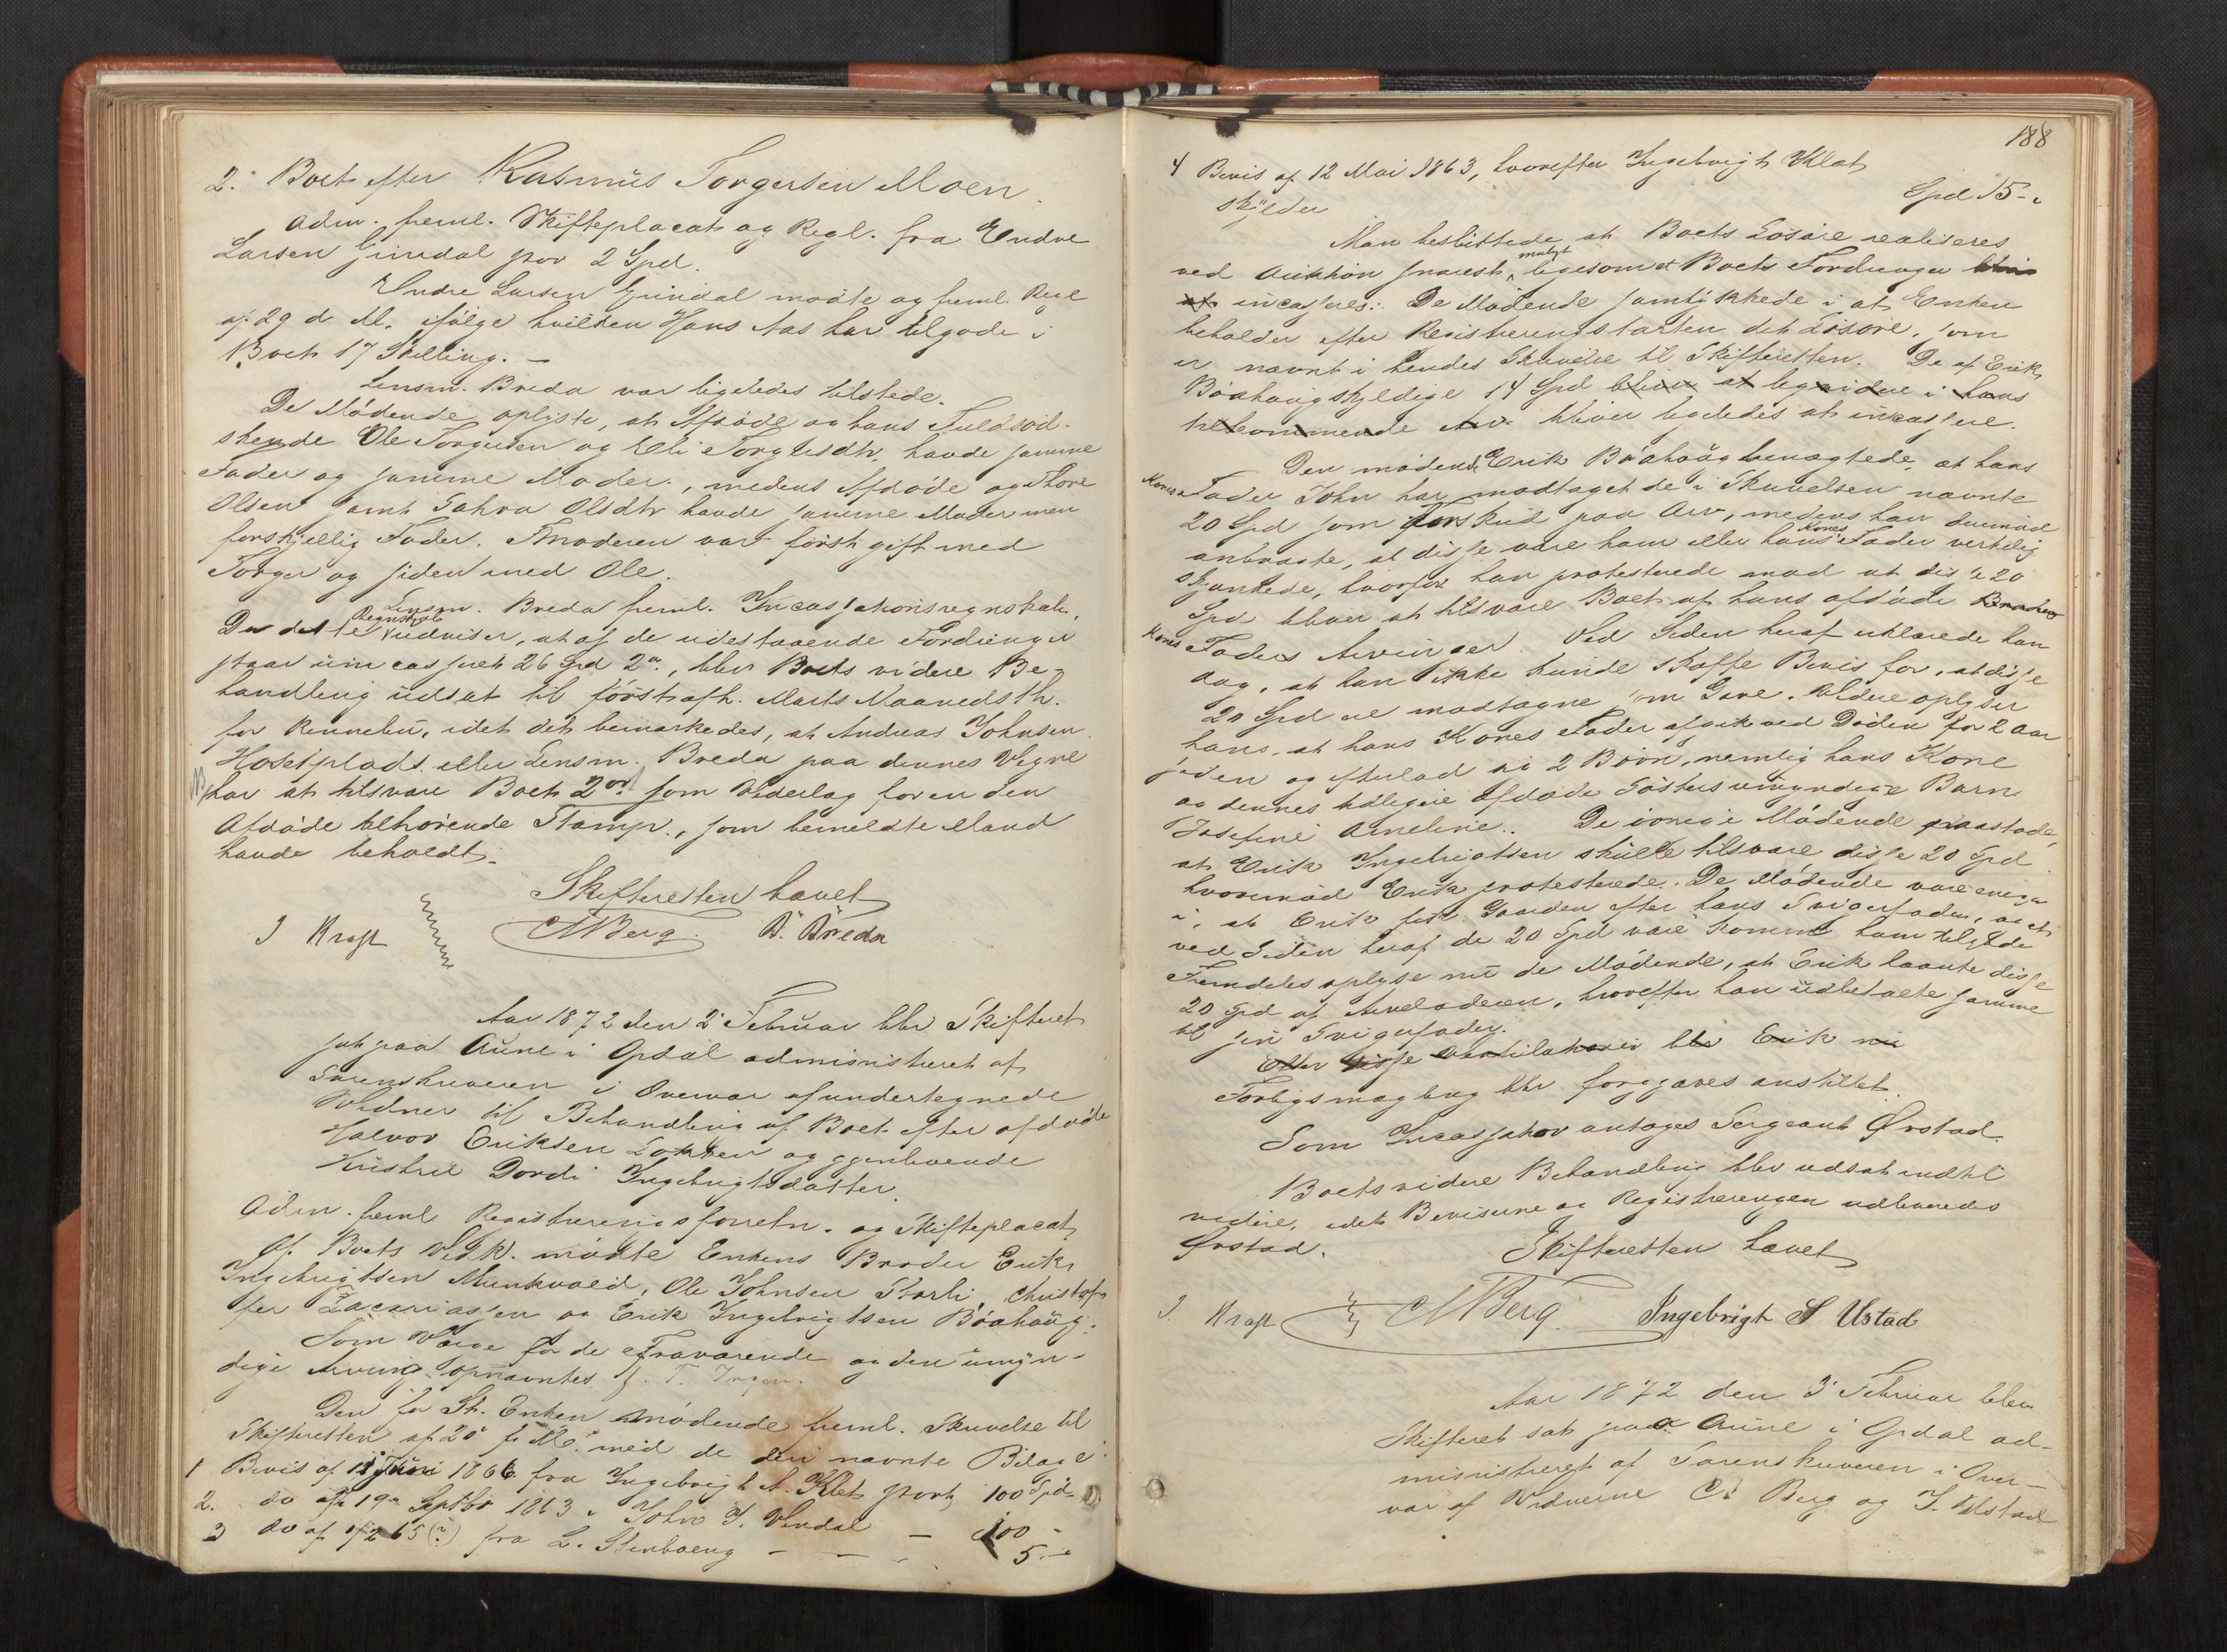 2. Boet efter Rasmus Torgersen Moen.
Adm. freml. Skifteplacat og Regl. fra Endre
Larsen Grindal pos 2 Spd.
Endre Larsen Grindal mødte og freml. Regl
af 29 d. M. ifølge hvilken Hans Aas har tilgode i
Boet 17 Skilling. –
Lensm. Breda var ligeledes tilstede.
De Mødende oplyste, at Afdøde og hans Fuldsød-
skende Ole Torgersen og Eli Torgersdtr. havde samme
Fader og samme Moder, medens Afdøde og Thore
Olsen samt Olsdtr havde samme Moder men
forskjellig Fader. Moderen var først gift med
Torger og siden med Ole.
Lensm. Breda freml. Incassationsregnskab.
Da dette Regnskab udviser, at af de udestaaende Fordringer
staar uincasseret 26 Spd 2 , blev Boets videre Be-
handling udsat til første afh. Marts Maaneds Th.
for Rennebu, idet det bemærkedes, at Andreas Johnsen
Hoselplads eller Lensm. Breda paa dennes Vegne
har at tilsvare Boet 2 ort som Vederlag for en den
Afdøde tilhørende Stamp, som bemeldte Mand
havde beholdt.
Skifteretten hævet
J Kraft
Berg. B. Breda
Aar 1872 den 2 Februar blev Skifteret
sat paa Aune i Opdal administreret af
Sorenskriveren i Overvær af undertegnede
Vidner til Behandling af Boet efter afdøde
Halvor Eriksen Løkken og gjenlevende
Hustru Dordi Ingebrigtsdatter.
Adm. freml Registreringsforretn. og Skifteplacat
Af Boets Vedk. mødte Enkens Broder Erik
Ingebrigtsen Munkvold, Ole Johnsen Storli, Christof-
fer Zacariassen og Erik Ingebrigtsen Böahaüg.
Som Værge for de Fraværende og den umyn-
dige Arving opnævntes
Den for St. Enken mødende freml. Skrivelse til
Skifteretten af 20 f. M. med de deri nævnte Bilage:
1 Bevis af Juni 1866 fra Ingebrigt A. Klet stort 100 Spd
2. do af 19 Septbr 1863 " John J. Vindal — 100 -
3 do af 1/2 65 (?) fra L. Stenboeng - - - 5. -
188
4 Bevis af 12 Mai 1863, hvorefter Ingebrigt Klæt
skylder Spd 15 -
Man besluttede at Boets Løsøre realiseres
ved Auktion snarest muligt ligesom at Boets Fordringer bliver
at incasseres. De Mødende samtykkede i at Enken
beholder efter Registreringstaxten det Løsøre, som
er nævnt i hendes Skrivelse til Skifteretten. De af Erik
Böahaug skyldige 14 Spd bliver at beregne i hans
tilkommende Arv bliver ligeledes at incassere.
Den mødende Erik Böahaüg benægtede, at hans
Kones Fader John har modtaget de i Skrivelsen nævnte
20 Spd som Forskud paa Arv, medens han derimod
anbragte, at disse vare ham eller hans Kones Fader verkelig
skjænkede, hvorfor han protesterede mod at disse 20
Spd bliver at tilsvare Boet af hans afdøde
Kones Faders Arvinger. Ved Siden heraf erklærede han
dog, at han ikke kunde skaffe Bevis for, at disse
20 Spd ere modtagne som Gave. Videre oplyser
hans, at hans Kones Fader afgik ved Døden for 2 Aar
siden og efterlod sig 2 Børn, nemlig hans Kone
og dennes tidligere afdøde Søsters umyndige Barn
Josefine Ameline. De øvrige Mødende paastode,
at Erik Ingebrigtsen skulle tilsvare disse 20 Spd
hvorimod Erik protesterede. De Mødende vare enige
i, at Erik fik Gaarden efter hans Svigerfader, og at
ved Siden heraf de 20 Spd vare kommet ham tilgode
Fremdeles oplyse nu de Mødende, at Erik laante disse
20 Spd af Arveladeren, hvorefter han udbetalte samme
til sin Svigerfader.
Efter disse blev Erik nu
Forligsmægling blev forgjæves anstillet.
Som Incassator antages Sergeant Ørstad.
Boets videre Behandling blev udsat indtil
videre, idet Beviserne og Registreringen udleveredes
Ørstad.
Skifteretten hævet
J. Kraft Berg. Ingebrigt S Ustad
Aar 1872 den 3 Februar blev
Skifteret sat paa Aune i Opdal ad-
ministreret af Sorenskriveren i Over-
vær af Vidnerne C. Berg og I. Ustad